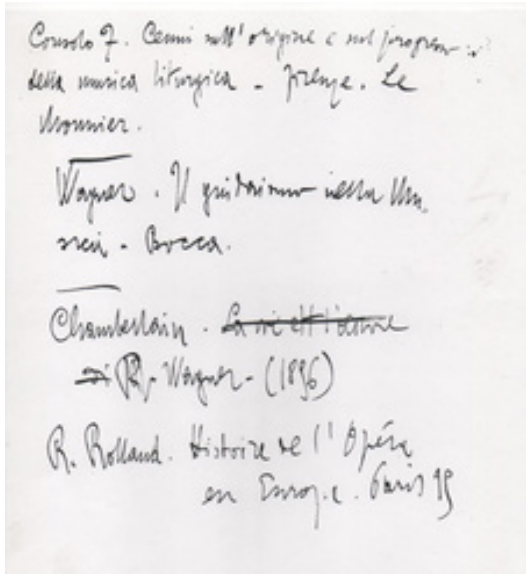 Consolo F. Cenni sull'origine e sul progresso
della musica liturgica - Firenze. Le
Monnier.
Wagner. Il giudaismo nella Mu
sica - Bocca.
Chamberlain. La vie et l'œuvre
di R. Wagner - (1896)
R. Rolland. Histoire de l'Opéra
en Europe. Paris 95